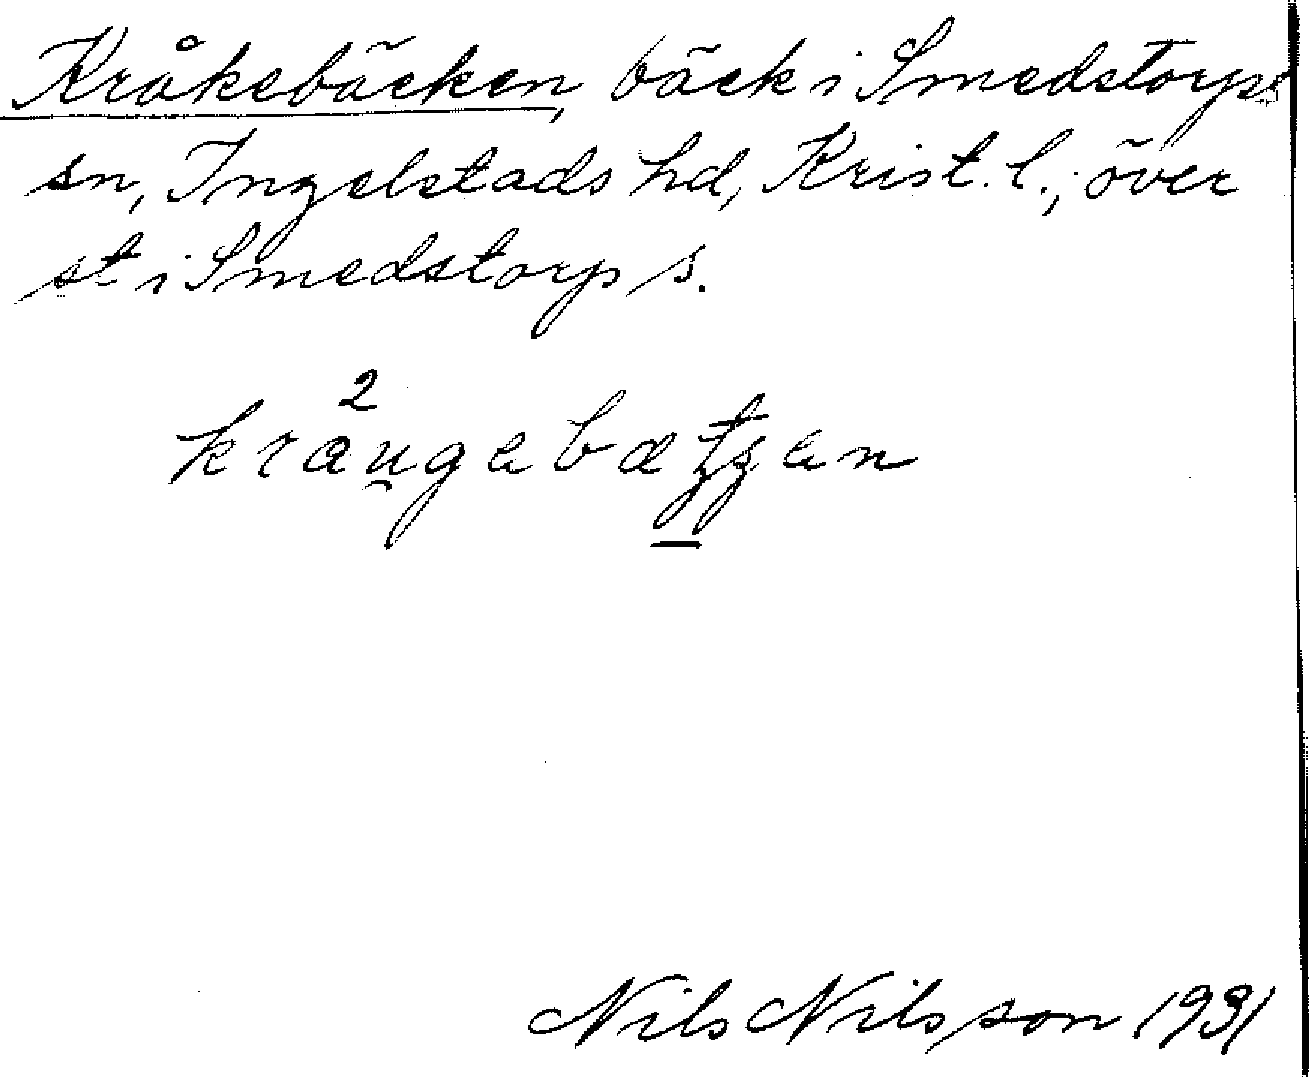 Kråkebäcken, bäck i Smedstorps
sn, Ingelstads hd, Krist. l.; över
st i Smedstorp s.
2
Nils Nilsson 1931